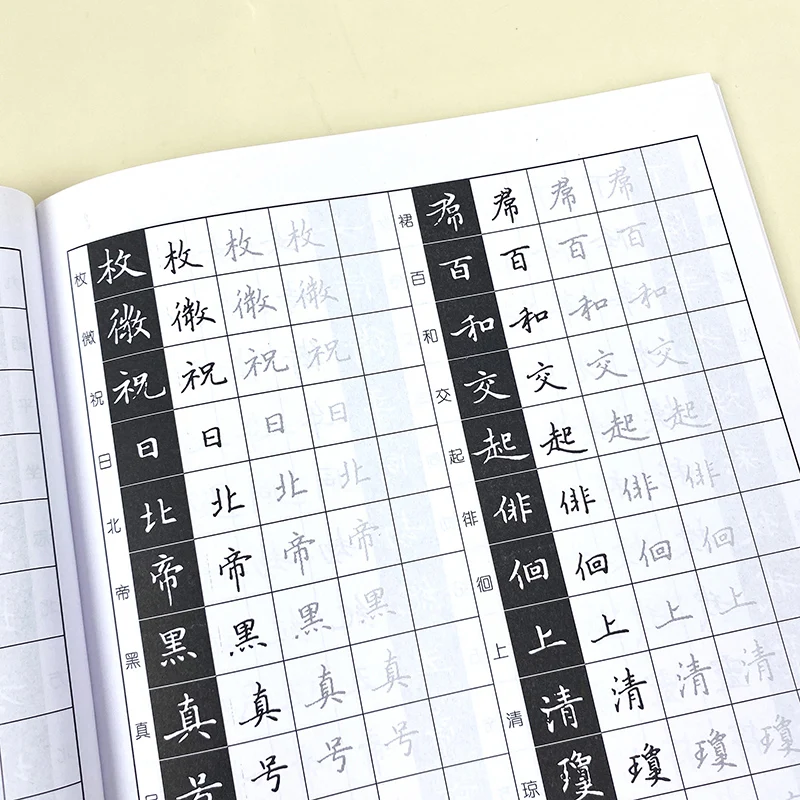 枚 枚 枚 枚 枚
微 㣲 㣲 㣲 㣲
祝 祝 祝 祝 祝
日 日 日 日 日
北 北 北 北 北
帝 帝 帝 帝 帝
黑 黑 黑 黑 黑
真 真 真 真 真
号 号 号 号
裙 帬 帬 帬 帬
百 百 百 百 百
和 和 和 和 和
交 交 交 交 交
起 起 起 起 起
徘 俳 俳 俳 俳
徊 佪 佪 佪 佪
上 上 上 上 上
清 清 清 清 清
琼 瓊 瓊 瓊 瓊